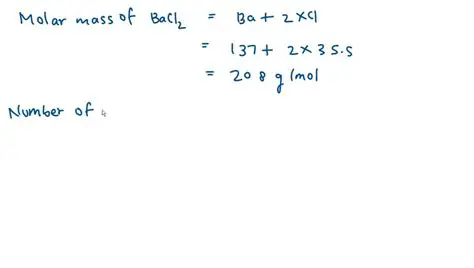 Molar mass of BaCl₂ = Ba + 2×Cl
= 137 + 2×35.5
= 208 g/mol
Number of